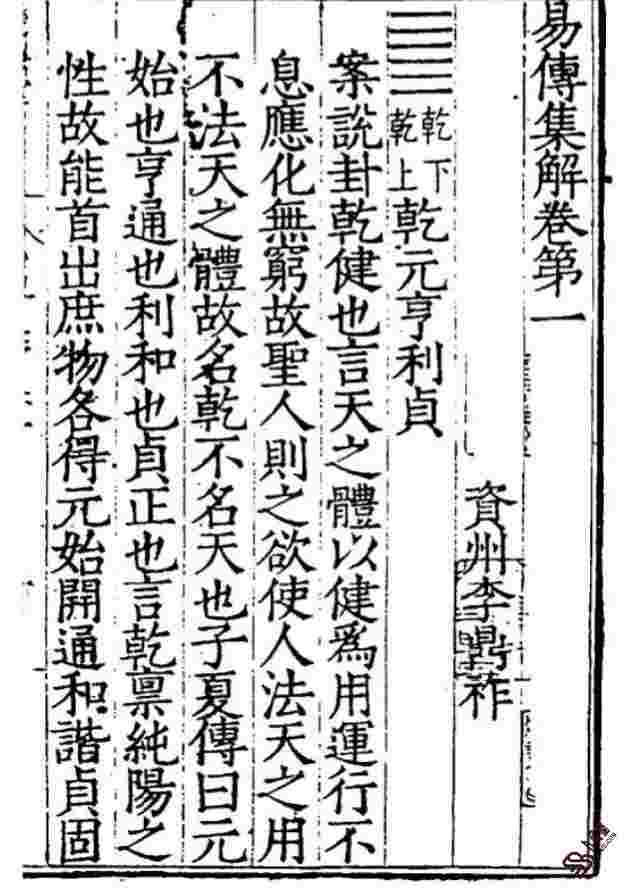 易傳集解卷第一
資州李鼎祚
䷀乾下乾上乾元亨利貞
案說卦乾健也言天之體以健爲用運行不
息應化無窮故聖人則之欲使人法天之用
不法天之體故名乾不名天也子夏傳曰元
始也亨通也利和也貞正也言乾禀純陽之
性故能首出庶物各得元始開通和諧貞固